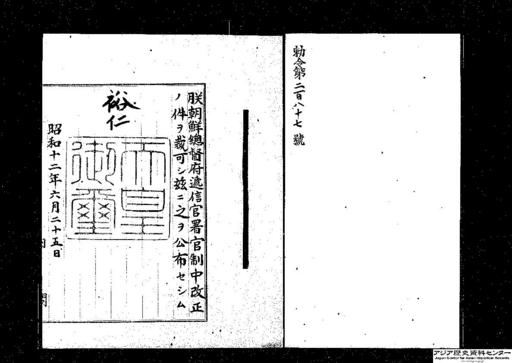 勅令第二百八十七號
朕朝鮮總督府遞信官署官制中改正
ノ件ヲ裁可シ玆ニ之ヲ公布セシム
裕仁
天皇
御璽
昭和十二年六月二十五日
アジア歴史資料センター
Japan Center for Asian Historical Records